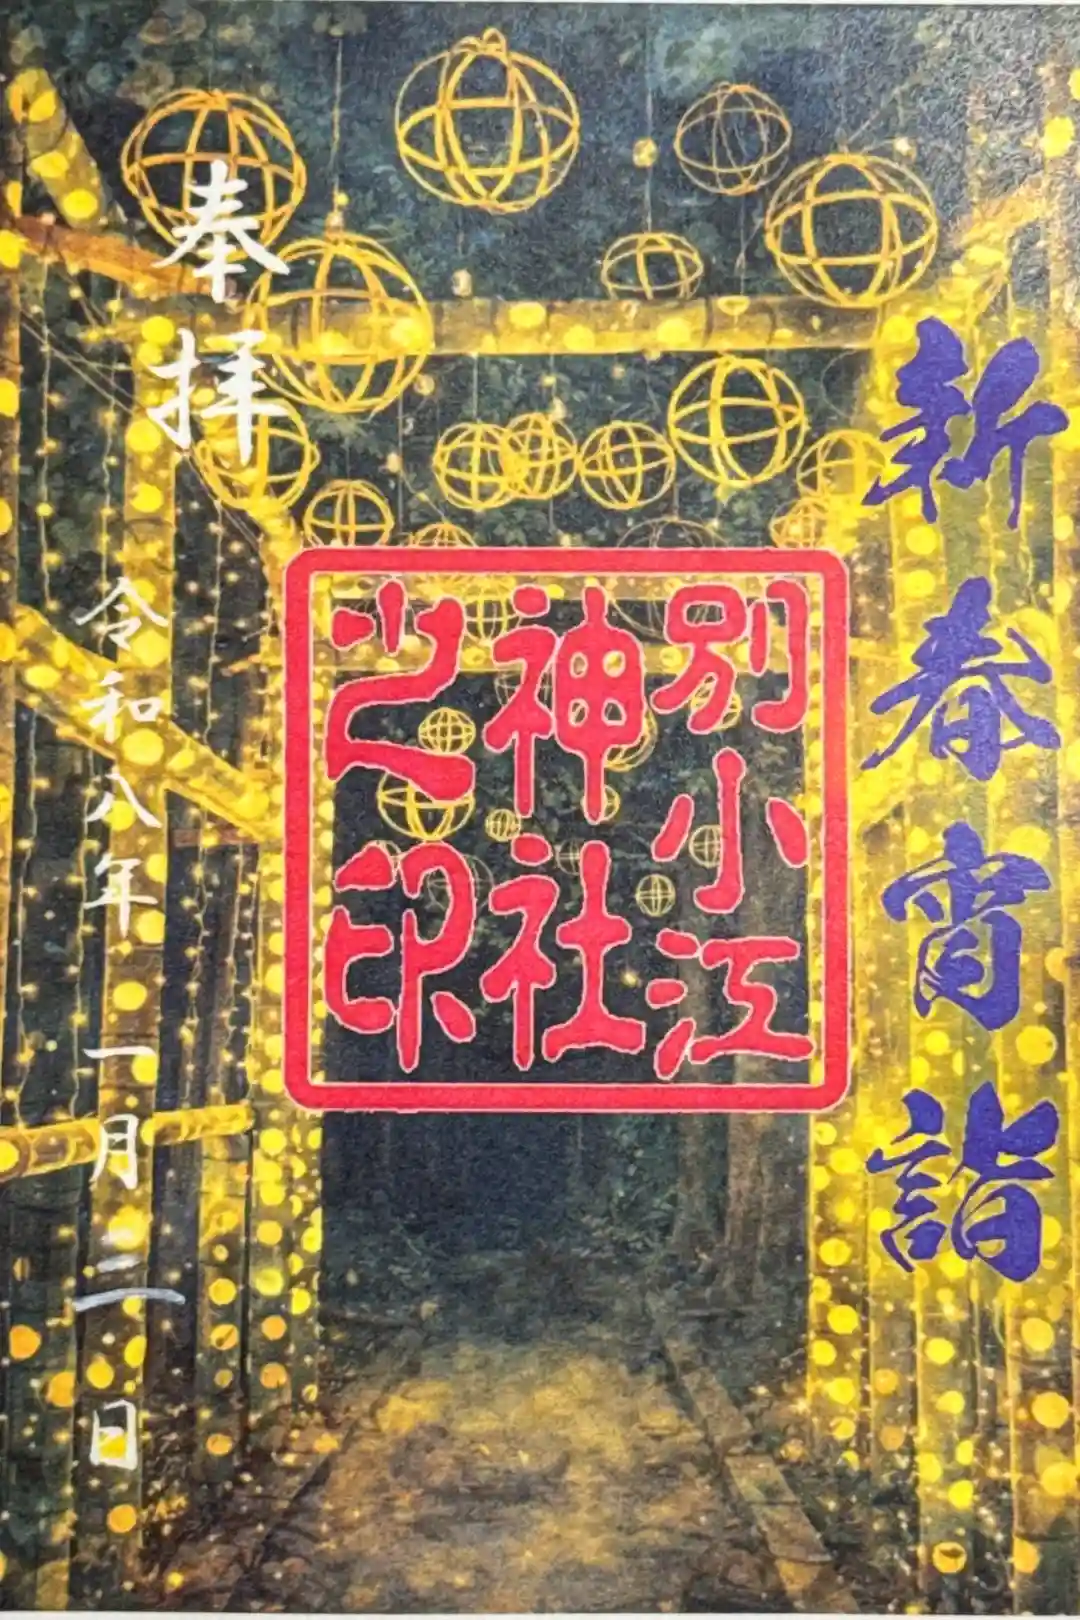 新春宵詣
別小江
神社
之印
奉拝
令和八年一月二日